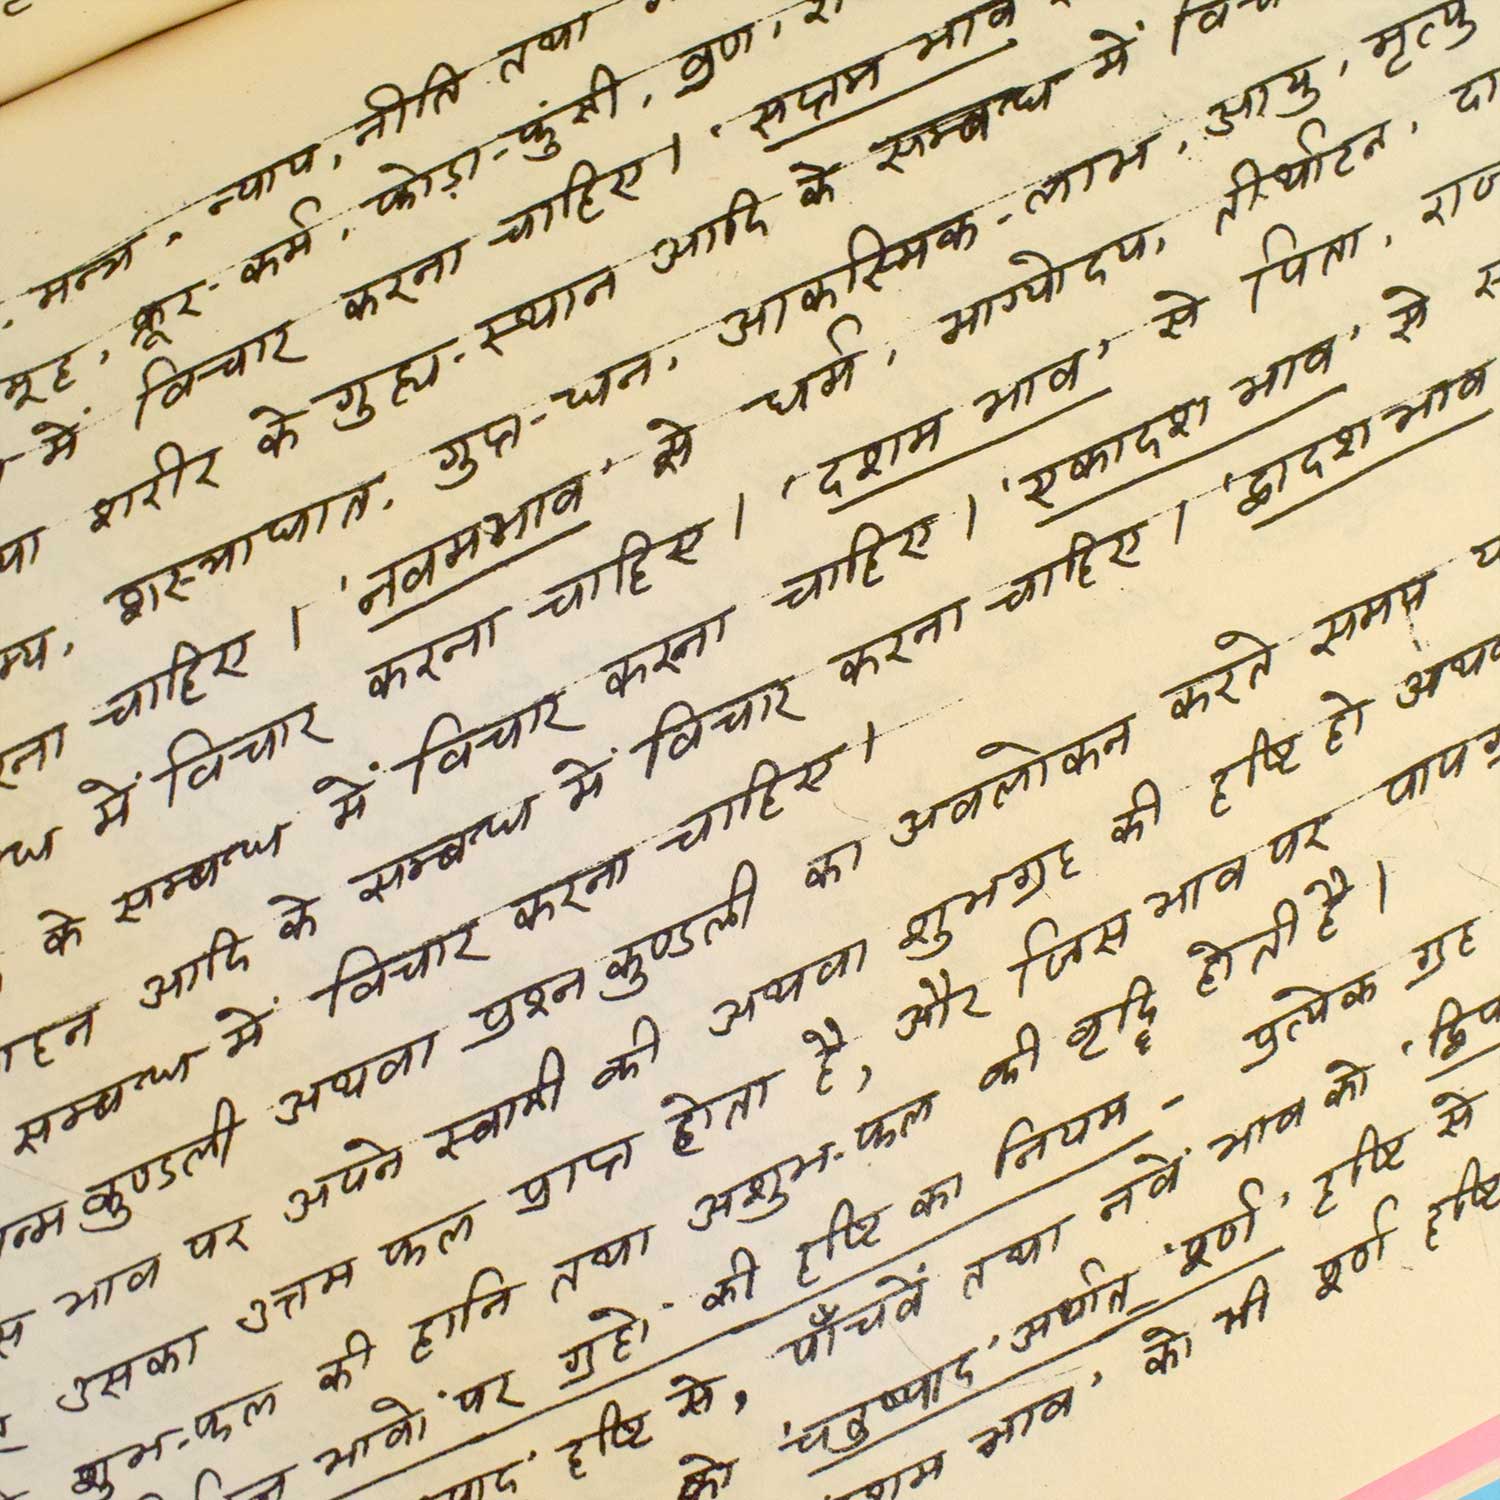 मन्त्र, न्याय, नीति तथा
क्रूर-कर्म, फोड़ा-फुंसी, व्रण,
में विचार करना चाहिए। 'सप्तम भाव
शरीर के गुह्य-स्थान आदि के सम्बन्ध में
शस्त्राघात, गुप्त-धन, आकस्मिक-लाभ, आयु, मृत्यु
चाहिए। 'नवमभाव' से धर्म, भाग्योदय, तीर्थाटन,
में विचार करना चाहिए। 'दशम भाव' से पिता,
के सम्बन्ध में विचार करना चाहिए। 'एकादश भाव' से
आदि के सम्बन्ध में विचार करना चाहिए। 'द्वादश भाव
सम्बन्ध में विचार करना चाहिए।
कुण्डली अथवा प्रश्न कुण्डली का अवलोकन करते समय
भाव पर अपने स्वामी की अथवा शुभग्रह की दृष्टि हो
उसका उत्तम फल प्राप्त होता है, और जिस भाव पर
शुभ-फल की हानि तथा अशुभ-फल की वृद्धि होती है।
भावों पर ग्रहों की दृष्टि का नियम - प्रत्येक ग्रह
दृष्टि से, पाँचवें तथा नवें भाव को
को 'चतुष्पाद' अर्थात् 'पूर्ण' दृष्टि से
भाव' को भी पूर्ण दृष्टि